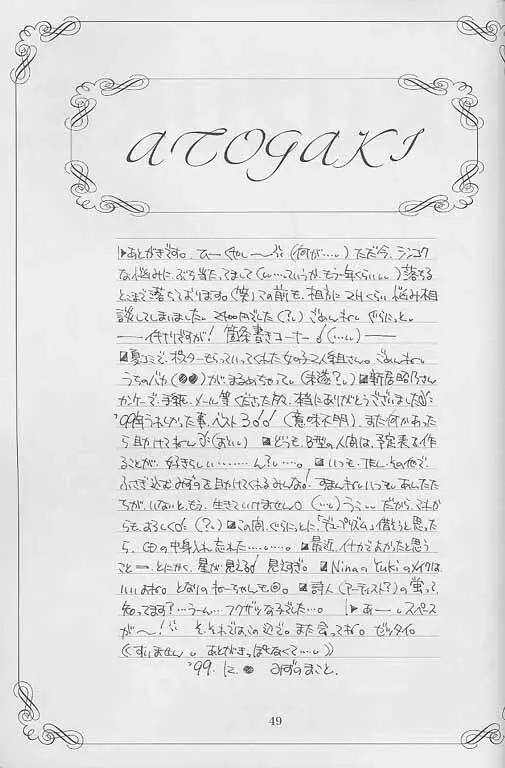 ATOGAKI
あとがきです。ひー くやしー (何が…) ただ今、シンコク
な悩みに、ぶち当たってまして (い…ていうか、もう一年くらい) 落ちる
とこまで落ちております。(笑) この前も、相方に 2Hくらい 悩み相
談してしまいました。 でした (?) ごめんねー ぐらにっと。
――代わりですが! 箇条書きコーナー (…)――
夏コミで、ポスターもらっていってくれた女の子2人組さん。ごめんねー
うちのバカ (●●) がまるめちゃって (未遂?) 新居昭乃さん
かケーで、手紙、メール等 くださった方、本当にありがとうございました
'99年うれしかった事、ベスト3 (意味不明) また何かあった
ら助けてねーん (おい) どうも、B型の人間は、予定表を作
ることが、好きらしい……ん?…。 いつも、TEL、その他で、
ふさぎ込むみずのを助けてくれるみんな! すまんねーいつも。あんたた
ちが、いないと、もう、生きていけません。(…) うっ… だから、これか
らも、よろしく (?) この間、ぐらにっとに、「デュープリズム」借そうと思った
ら、CDの中身入れ忘れた……。 最近、イナカでよかったと思う
こと＝とにかく、星が見える! 見えすぎ。 Ninaの Yukiのメイクは、
いいよね。となりのねーちゃんも◎。 詩人 (アーティスト?) の蛍って、
知ってます?…うーん…フクザツな子でした…。 あー スペース
が〜! そ、それではこの辺で。また会ってね。ゼッタイ。
((すいません あとがきっぽくなくて…))
'99. 12. ● みずのまこと。
49